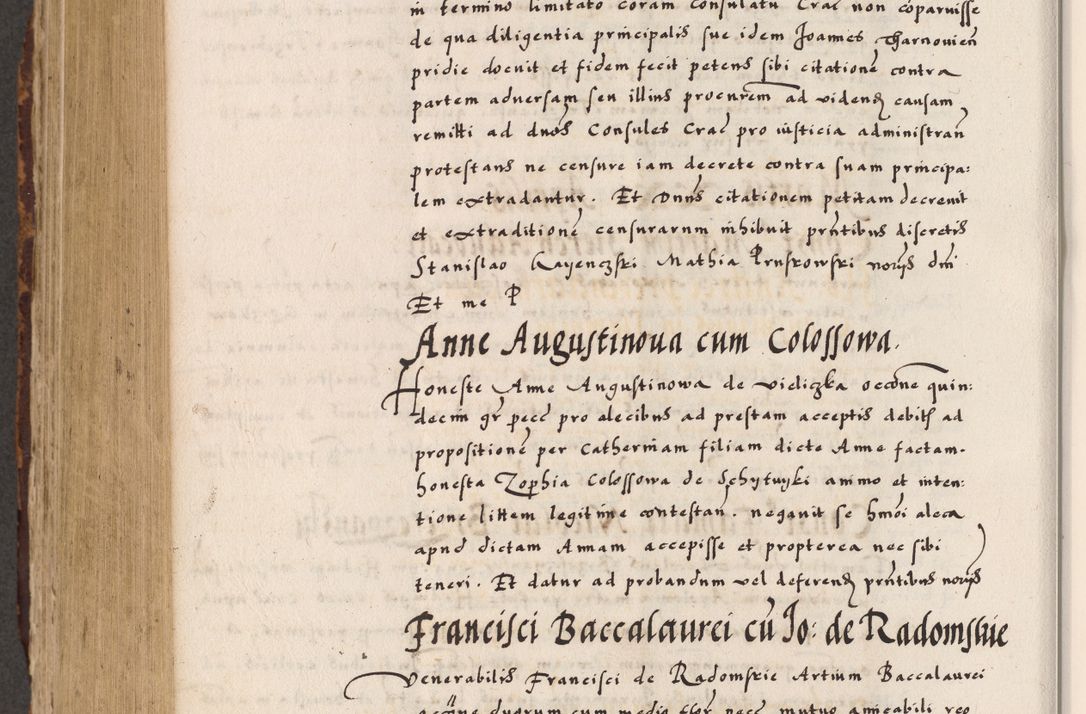 in termino limitato coram consulatu Crac̄ non coparuisse
de qua diligentia principalis sue idem Joannes Tharnovień
pridie docuit et fidem fecit petens sibi citationē contra
partem adversam seu illius procurēm ad videnď causam
remitti ad dnōs Consules Crac̄ pro iusticia administrań
protestans ne censure iam decrete contra suam principa:
lem extradantur. Et Dnn̄s citationem petitam decrevit
et extraditionē censurarum inhibuit prn̄tibus discretis
Stanislao Kayenczski Mathia Pruskowski norÿs dm̄
Et me P
Anne Augustinoua cum Colossowa.
Honeste Anne Augustinowa de vieliczka occōne quin:
decim gr̄ pecc̄ pro alecibus ad prestam acceptis debitꝭ ad
propositionē per Catherinam filiam dicte Anne factam.
honesta Zophia Colossowa de Schytuyki animo et inten:
tione littem legitime contestań. negavit se hm̄oi aleca
apud dictam Annam accepisse et propterea nec sibi
teneri. Et datur ad probandum vel deferenď prn̄tibus norÿs
Francisci Baccalaurei cū Jo: de Radomskie
Venerabilis Francisci de Radomskie Artium Baccalaurei
occōne duorum cum medio flor̄ pecc̄ mutuo amicabili reo